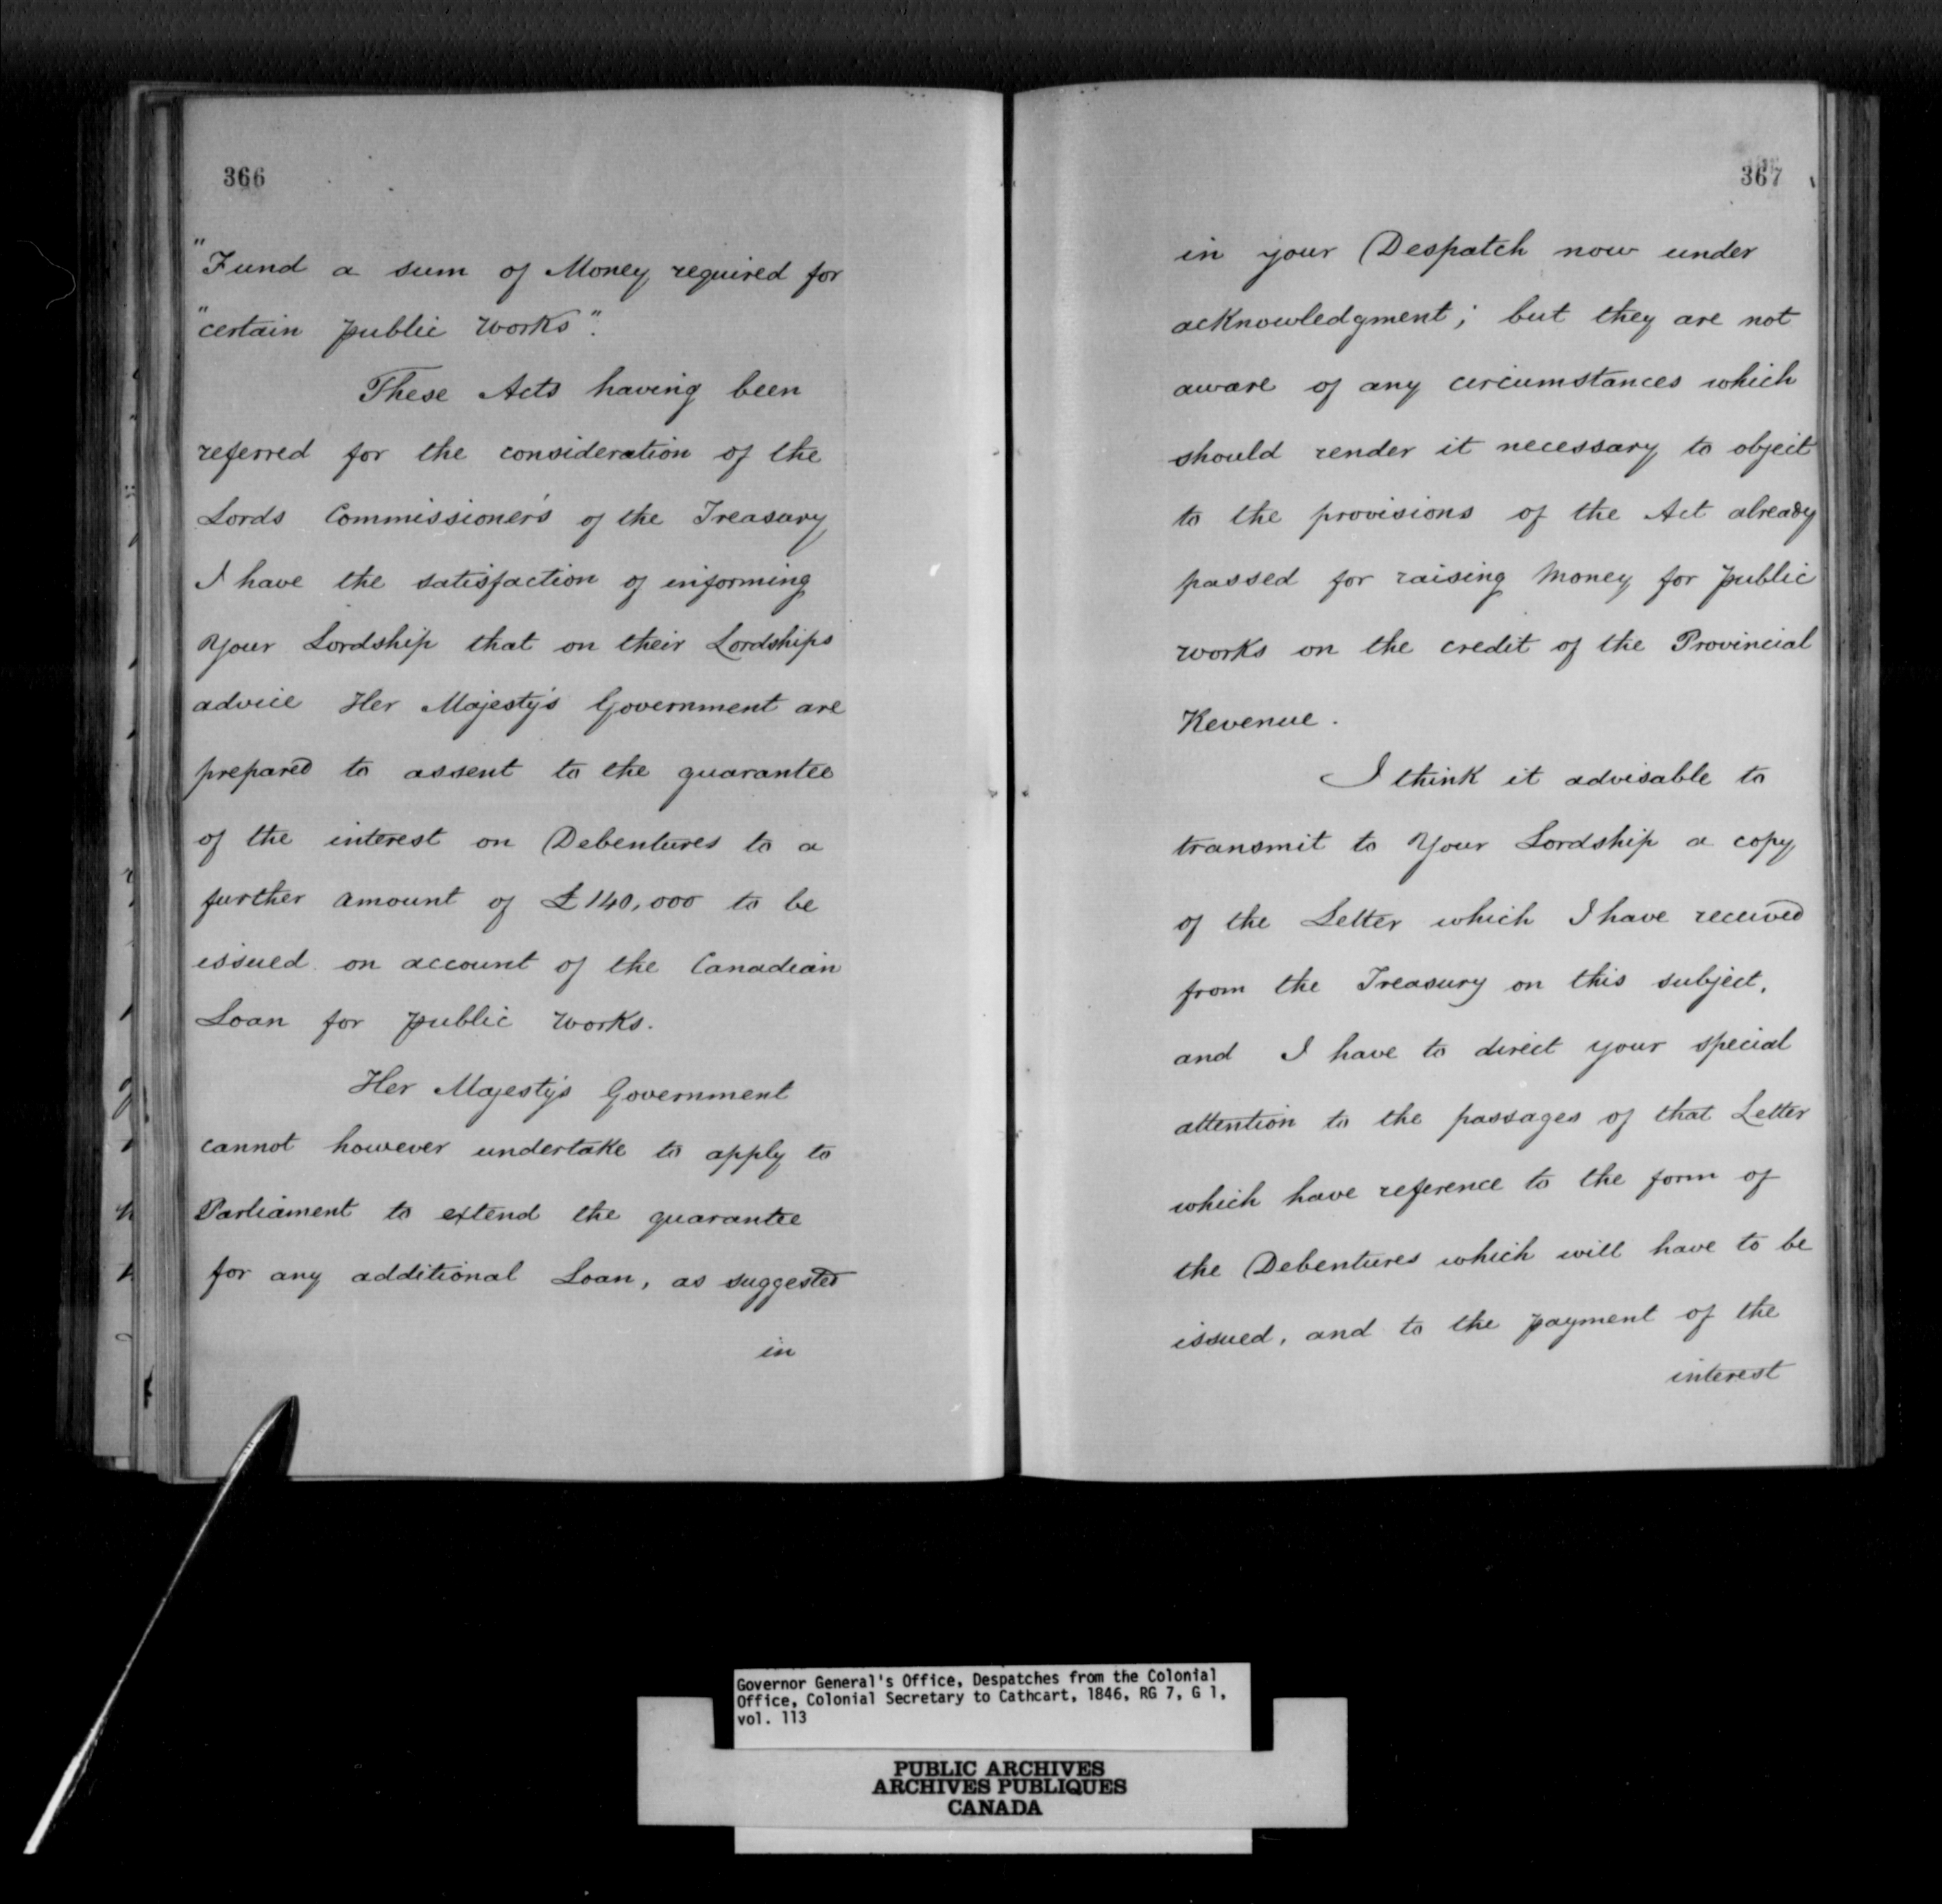 366
"Fund a sum of Money required for
"certain public works".
These Acts having been
referred for the consideration of the
Lords Commissioner's of the Treasury
I have the satisfaction of informing
Your Lordship that on their Lordships
advice Her Majesty's Government are
prepared to assent to the guarantee
of the interest on Debentures to a
further amount of £140,000 to be
issued on account of the Canadian
Loan for public works.
Her Majesty's Government
cannot however undertake to apply to
Parliament to extend the guarantee
for any additional Loan, as suggested
in
367
in your Despatch now under
acknowledgment; but they are not
aware of any circumstances which
should render it necessary to object
to the provisions of the Act already
passed for raising Money for public
works on the credit of the Provincial
Revenue.
I think it advisable to
transmit to Your Lordship a copy
of the Letter which I have received
from the Treasury on this subject,
and I have to direct your special
attention to the passages of that Letter
which have reference to the form of
the Debentures which will have to be
issued, and to the payment of the
interest
Governor General's Office, Despatches from the Colonial
Office, Colonial Secretary to Cathcart, 1846, RG 7, G 1,
vol. 113
PUBLIC ARCHIVES
ARCHIVES PUBLIQUES
CANADA